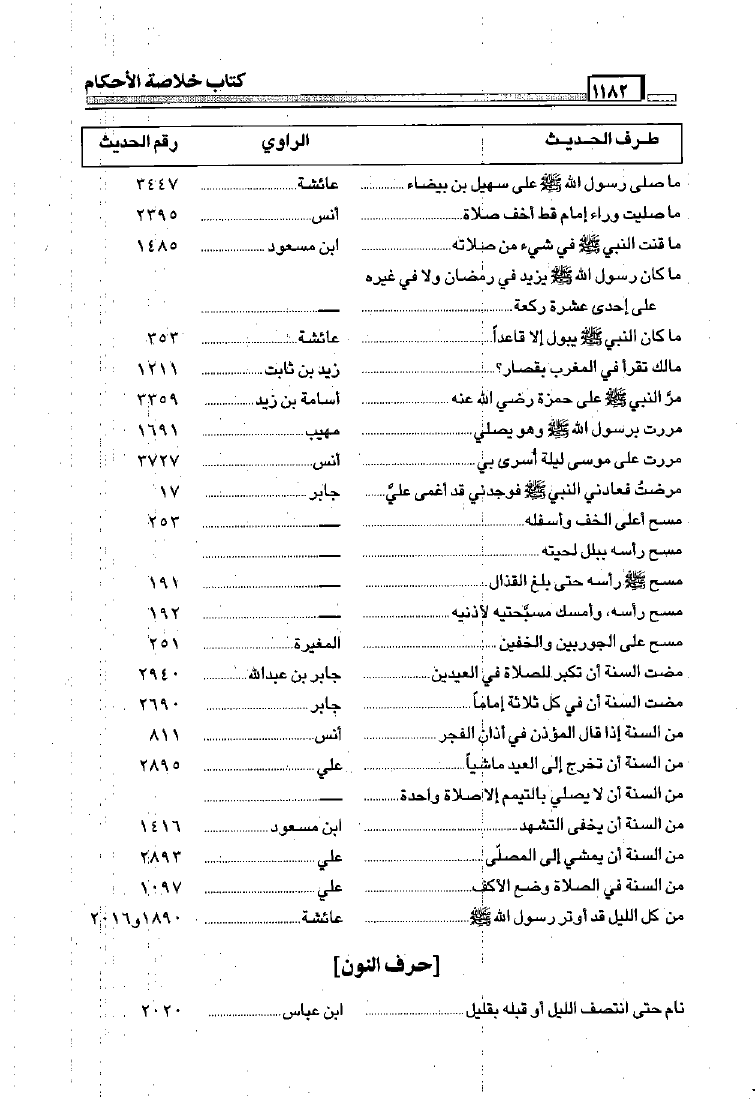 ١١٨٢ كتاب خلاصة الأحكام
طرف الحديث الراوي رقم الحديث
ما صلى رسول الله ﷺ على سهيل بن بيضاء عائشة ٣٤٤٧
ما صليت وراء إمام قط أخف صلاة أنس ٢٣٩٥
ما قنت النبي ﷺ في شيء من صلاته ابن مسعود ١٤٨٥
ما كان رسول الله ﷺ يزيد في رمضان ولا في غيره
على إحدى عشرة ركعة —
ما كان النبي ﷺ يبول إلا قاعداً عائشة ٣٥٣
مالك تقرأ في المغرب بقصار؟ زيد بن ثابت ١٢١١
مرَّ النبي ﷺ على حمزة رضي الله عنه أسامة بن زيد ٣٣٥٩
مررت برسول الله ﷺ وهو يصلي مهيب ١٦٩١
مررت على موسى ليلة أُسري بي أنس ٣٧٢٧
مرضتُ فعادني النبي ﷺ فوجدني قد أغمى عليَّ جابر ١٧
مسح أعلى الخف وأسفله — ٢٥٣
مسح رأسه ببلل لحيته —
مسح ﷺ رأسه حتى بلغ القذال — ١٩١
مسح رأسه، وأمسك مسبَّحتيه لأذنيه — ١٩٢
مسح على الجوربين والخفين المغيرة ٢٥١
مضت السنة أن تكبر للصلاة في العيدين جابر بن عبدالله ٢٩٤٠
مضت السنة أن في كل ثلاثة إماماً جابر ٢٦٩٠
من السنة إذا قال المؤذن في أذان الفجر أنس ٨١١
من السنة أن تخرج إلى العيد ماشياً علي ٢٨٩٥
من السنة أن لا يصلي بالتيمم إلا صلاة واحدة —
من السنة أن يخفى التشهد ابن مسعود ١٤١٦
من السنة أن يمشي إلى المصلّى علي ٢٨٩٣
من السنة في الصلاة وضع الأكف علي ١٠٩٧
من كل الليل قد أوتر رسول الله ﷺ عائشة ١٨٩٠و٢٠١٦
[حرف النون]
نام حتى انتصف الليل أو قبله بقليل ابن عباس ٢٠٢٠